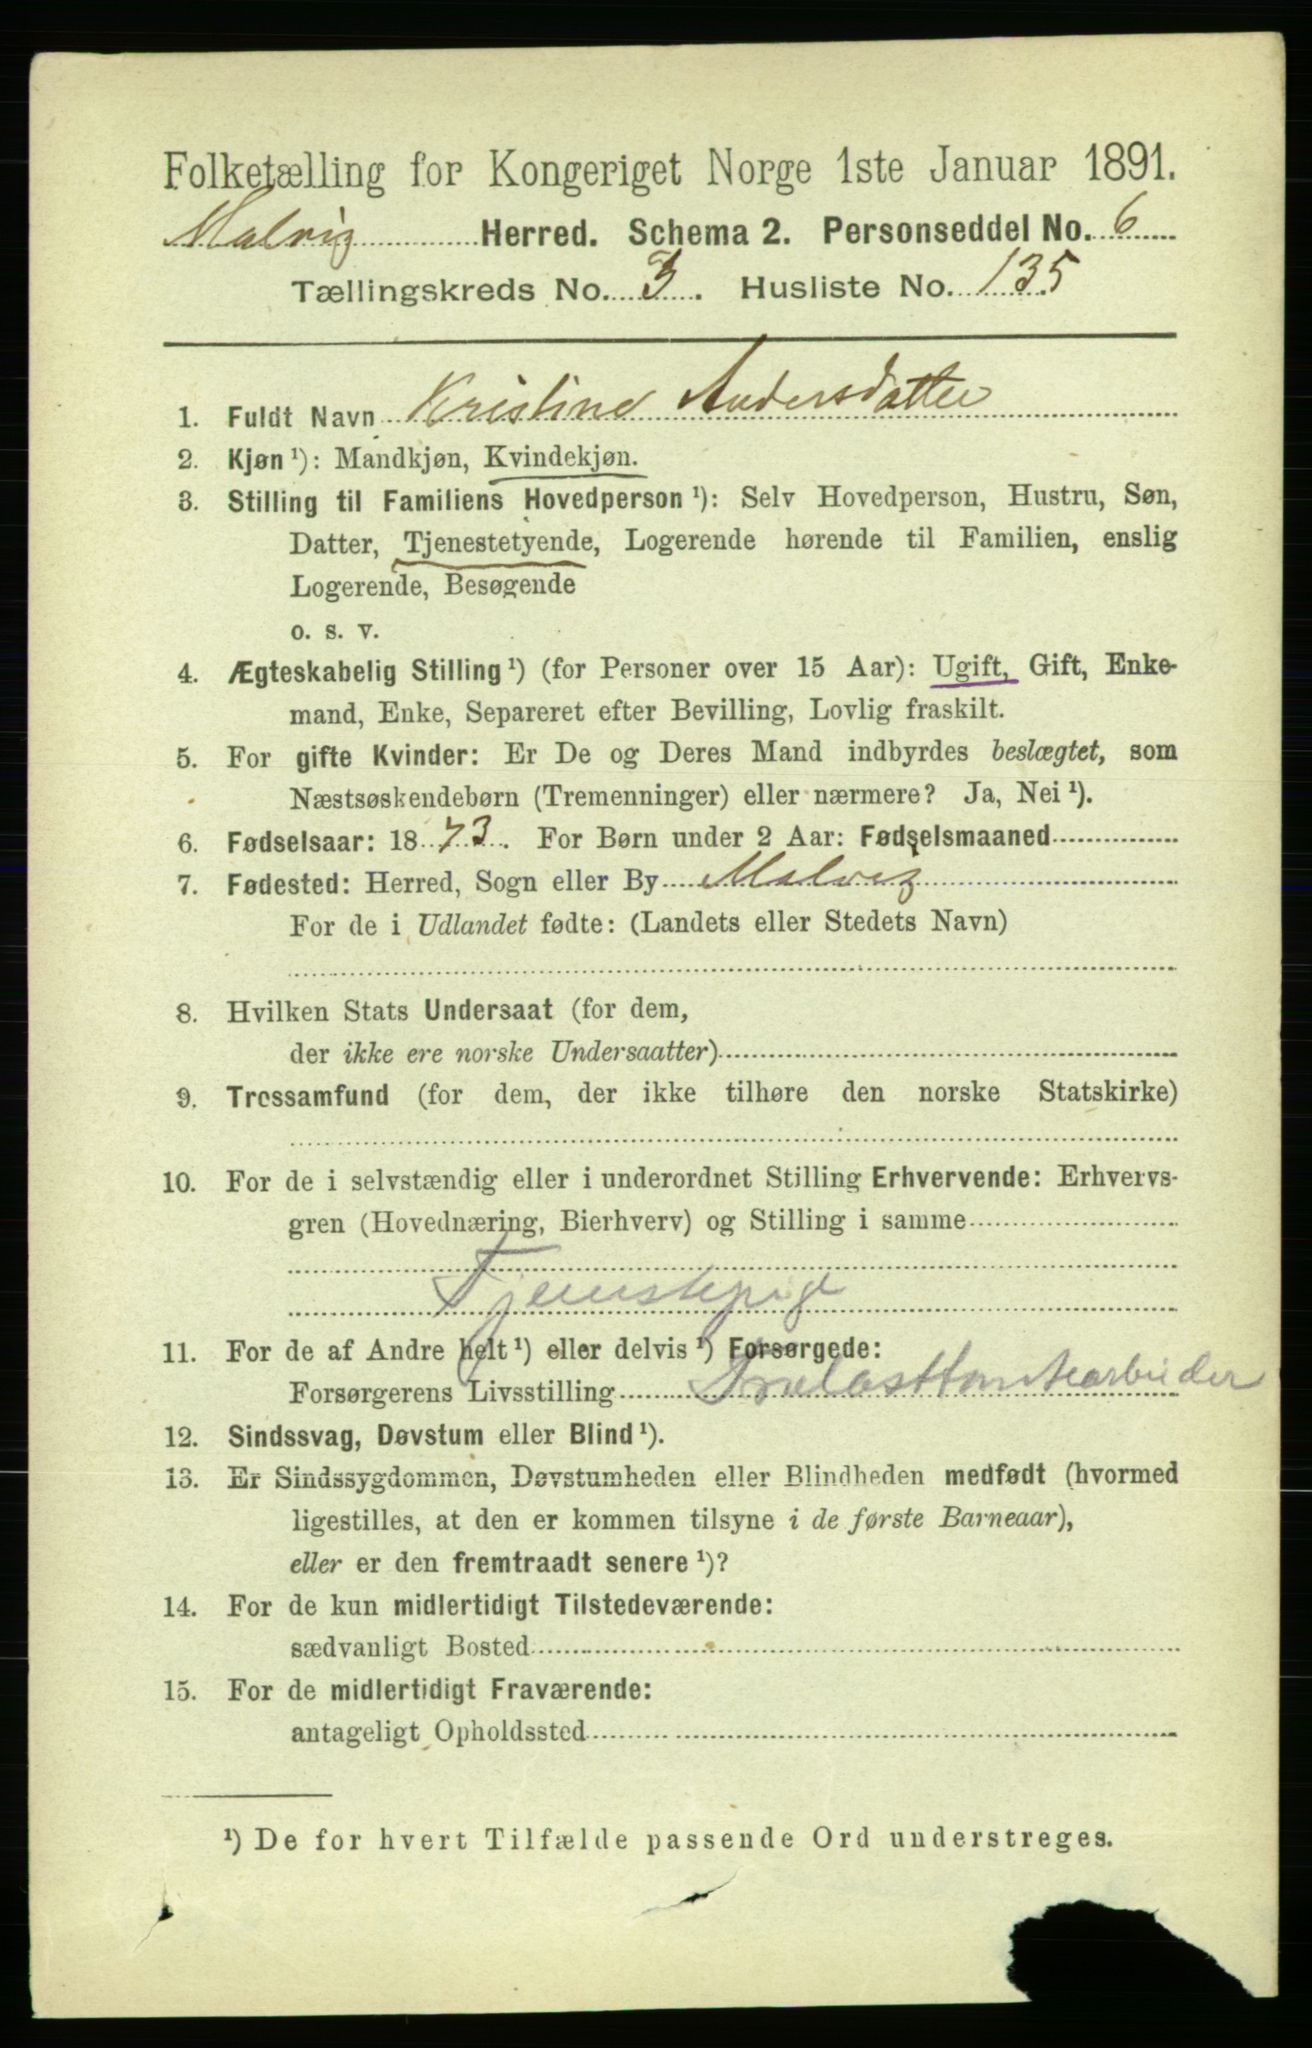 Folketælling for Kongeriget Norge 1ste Januar 1891.
Malvig Herred. Schema 2. Personseddel No. 6
Tællingskreds No. 3. Husliste No. 135
1. Fuldt Navn Kristine Andersdatter
2. Kjøn ¹): Mandkjøn, Kvindekjøn.
3. Stilling til Familiens Hovedperson ¹): Selv Hovedperson, Hustru, Søn,
Datter, Tjenestetyende, Logerende hørende til Familien, enslig
Logerende, Besøgende
o. s. v.
4. Ægteskabelig Stilling ¹) (for Personer over 15 Aar): Ugift, Gift, Enke-
mand, Enke, Separeret efter Bevilling, Lovlig fraskilt.
5. For gifte Kvinder: Er De og Deres Mand indbyrdes beslægtet, som
Næstsøskendebørn (Tremenninger) eller nærmere? Ja, Nei ¹).
6. Fødselsaar: 1873. For Børn under 2 Aar: Fødselsmaaned
7. Fødested: Herred, Sogn eller By Malvig
For de i Udlandet fødte: (Landets eller Stedets Navn)
8. Hvilken Stats Undersaat (for dem,
der ikke ere norske Undersaatter)
9. Trossamfund (for dem, der ikke tilhøre den norske Statskirke)
10. For de i selvstændig eller i underordnet Stilling Erhvervende: Erhvervs-
gren (Hovednæring, Bierhverv) og Stilling i samme
Tjenestepige
11. For de af Andre helt ¹) eller delvis ¹) Forsørgede:
Forsørgerens Livsstilling
12. Sindssvag, Døvstum eller Blind ¹).
13. Er Sindssygdommen, Døvstumheden eller Blindheden medfødt (hvormed
ligestilles, at den er kommen tilsyne i de første Barneaar),
eller er den fremtraadt senere ¹)?
14. For de kun midlertidigt Tilstedeværende:
sædvanligt Bosted
15. For de midlertidigt Fraværende:
antageligt Opholdssted
¹) De for hvert Tilfælde passende Ord understreges.